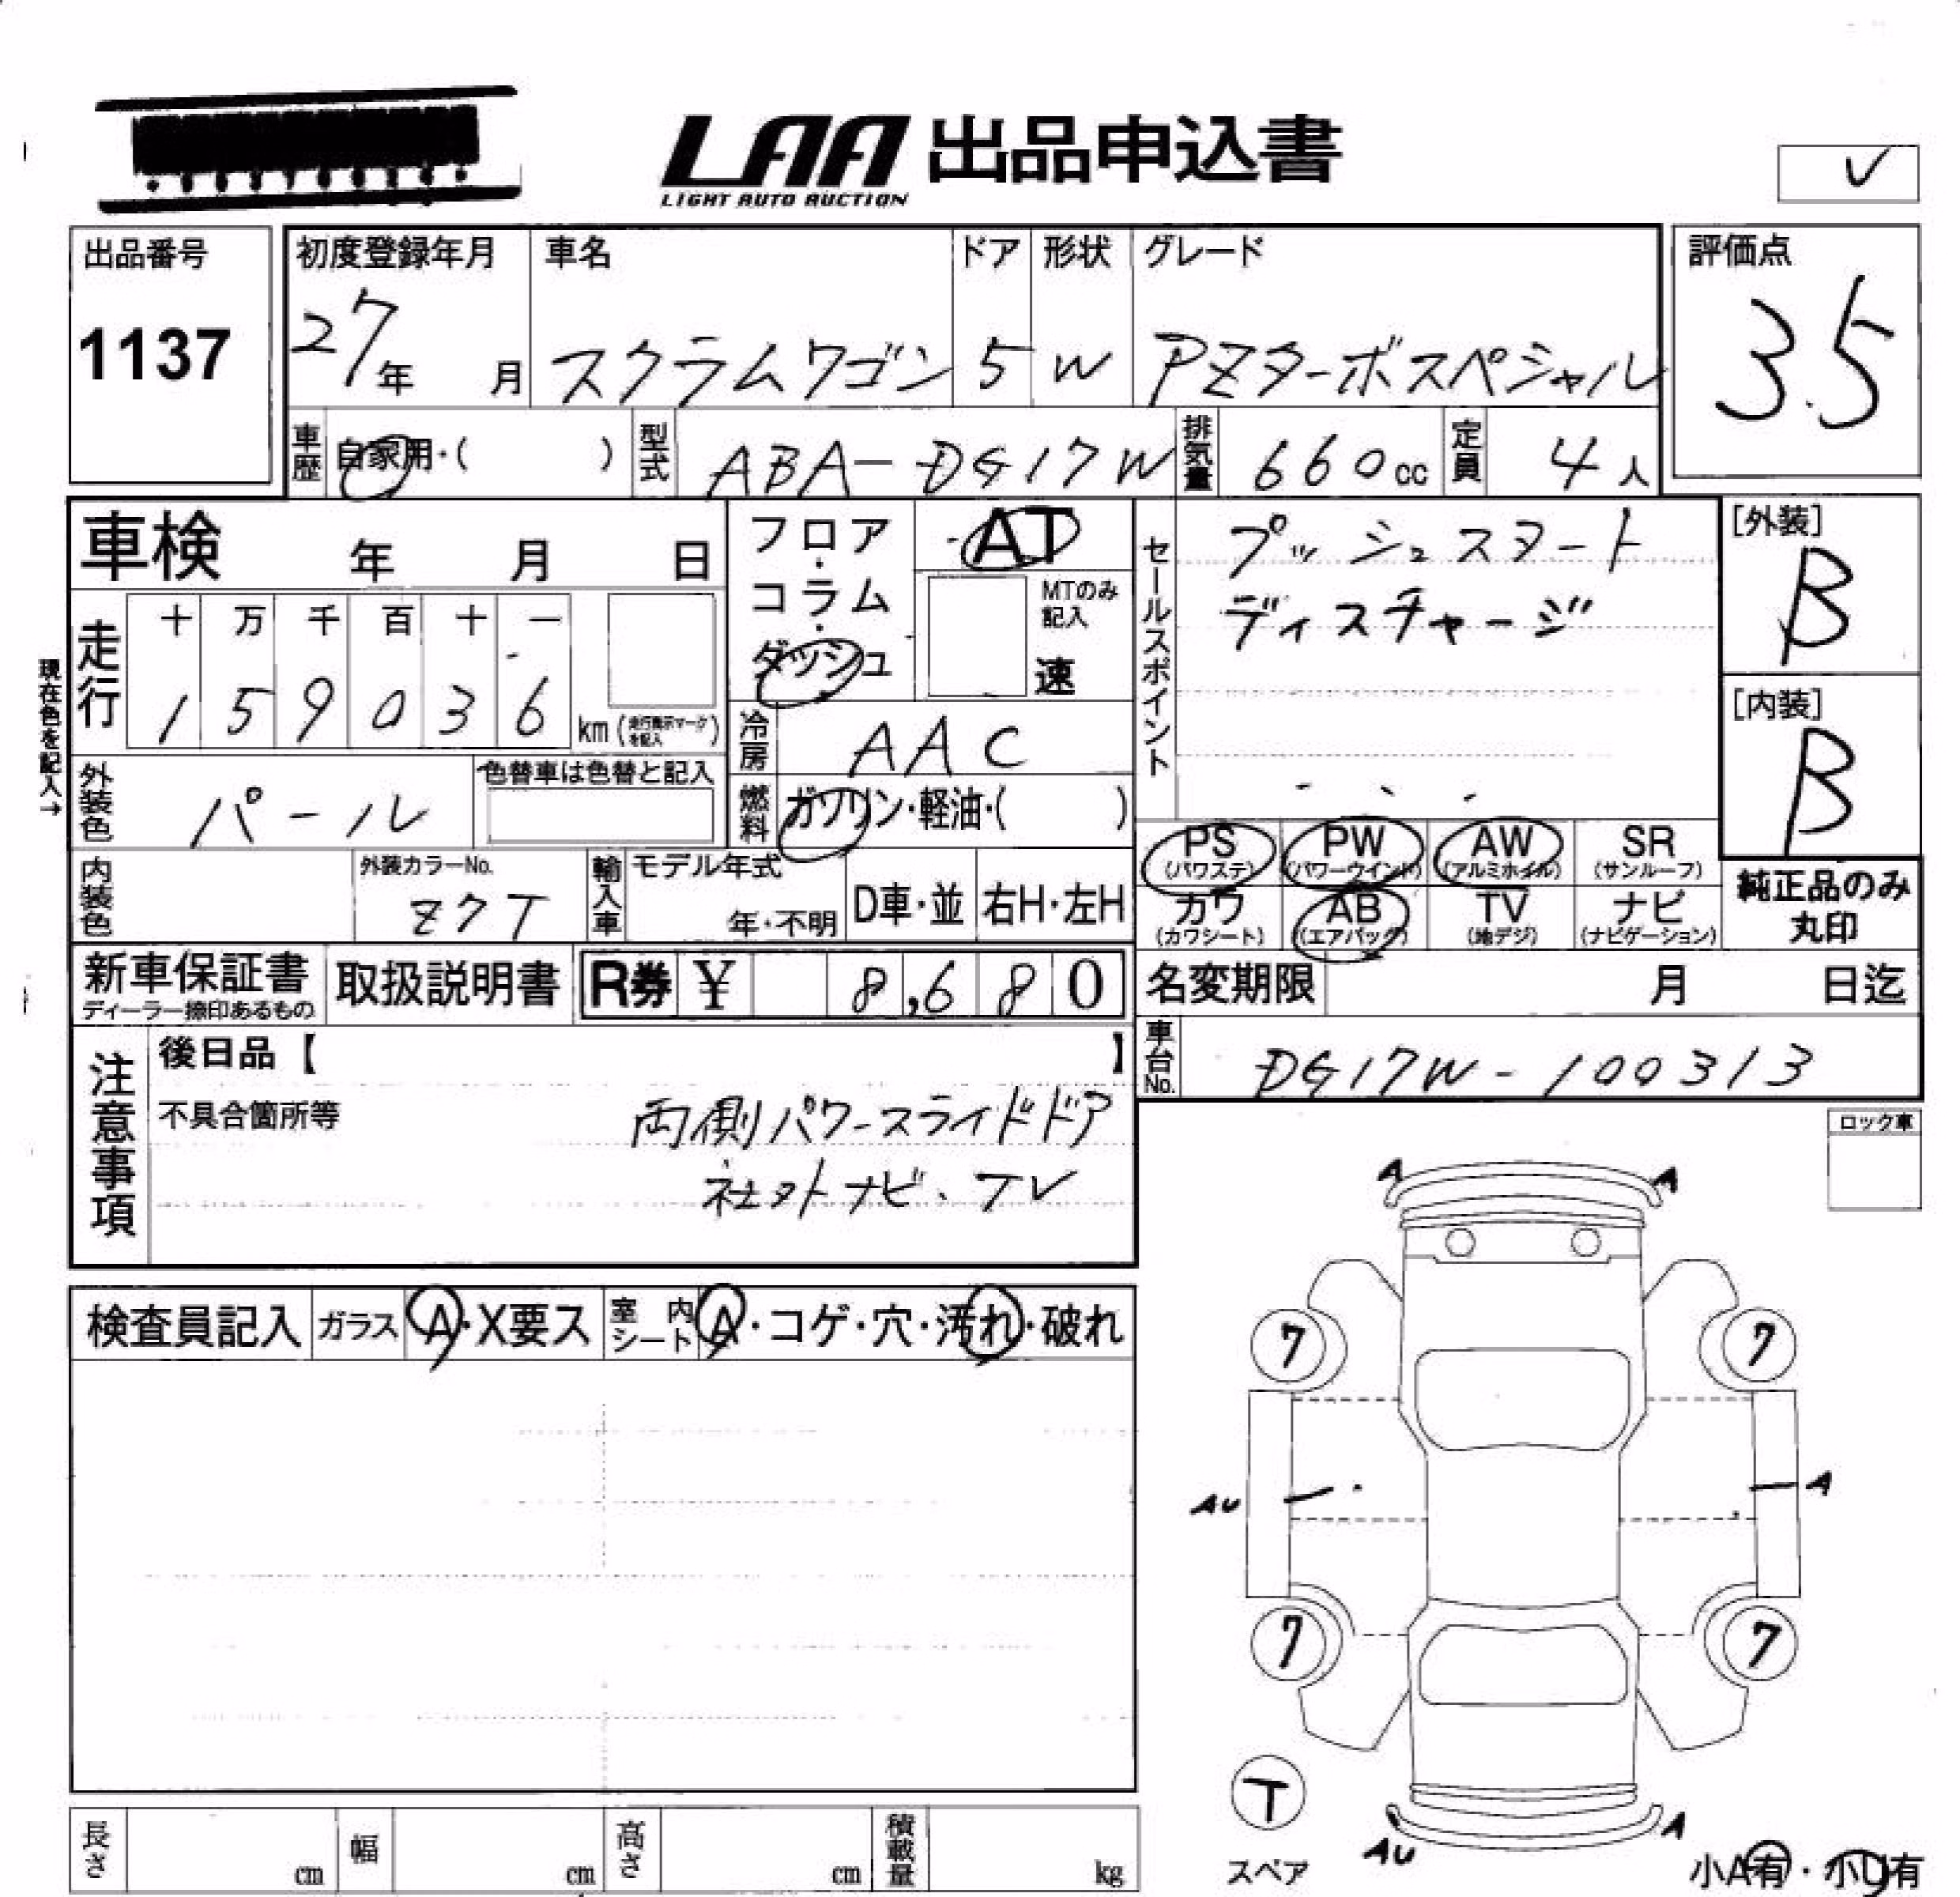 LAA 出品申込書
LIGHT AUTO AUCTION
✓
出品番号
1137
初度登録年月
27年 月
車名
スクラムワゴン
ドア
5
形状
W
グレード
PZターボスペシャル
評価点
3.5
車歴 自家用・( )
型式 ABA-DG17W
排気量 660cc
定員 4人
車検 年 月 日
走行
十 万 千 百 十 一
1 5 9 0 3 6 km (走行表示マークを記入)
現在色を記入→
外装色 パール
色替車は色替と記入
内装色
外装カラーNo.
Z7T
フロア・コラム・ダッシュ
AT
MTのみ記入
速
冷房 AAC
燃料 ガソリン・軽油・( )
輸入車
モデル年式
年・不明
D車・並
右H・左H
セールスポイント
プッシュスタート
ディスチャージ
[外装]
B
[内装]
B
PS (パワステ)
PW (パワーウインド)
AW (アルミホイル)
SR (サンルーフ)
カワ (カワシート)
AB (エアバック)
TV (地デジ)
ナビ (ナビゲーション)
純正品のみ丸印
新車保証書
ディーラー捺印あるもの
取扱説明書
R券 ¥ 8,680
名変期限 月 日迄
車台No. DG17W-100313
注意事項
後日品【 】
不具合箇所等
両側パワースライドドア
社外ナビ、TV
ロック車
検査員記入
ガラス A・X要ス
室内シート A・コゲ・穴・汚れ・破れ
A A
7 7
AU A
7 7
T
スペア
AU A
小A有・小U有
長さ cm
幅 cm
高さ cm
積載量 kg